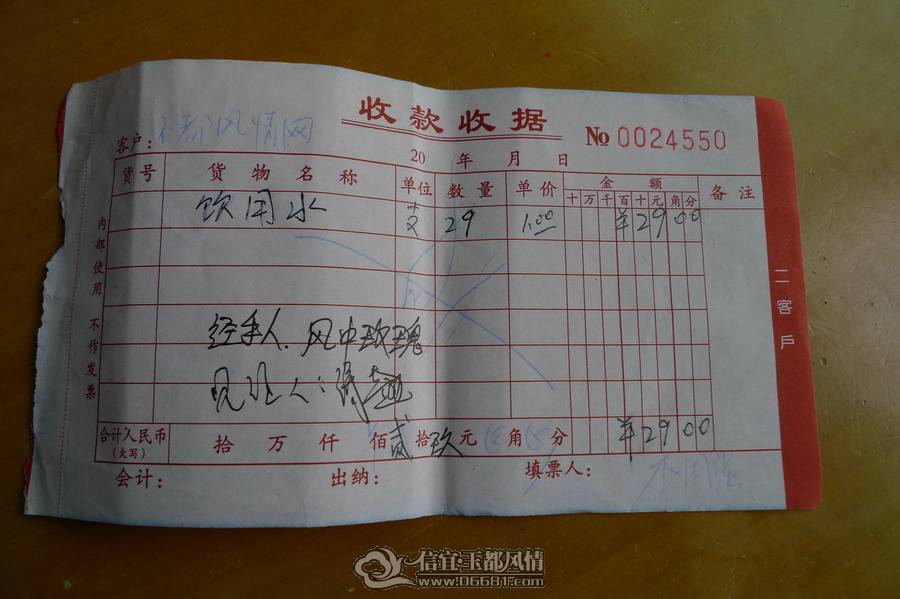 收款收据
№ 0024550
客户：玉都风情网
20 年 月 日
货号 货物名称 单位 数量 单价 金额 备注
十万千百十元角分
饮用水 支 29 1.00 ¥29 00
经手人：风中玫瑰
见证人：
合计人民币(大写) 拾 万 仟 佰 贰拾玖元 角 分 ¥29 00
会计： 出纳： 填票人：
内部使用 不作发票
二客户
信宜·玉都风情
www.06681.com